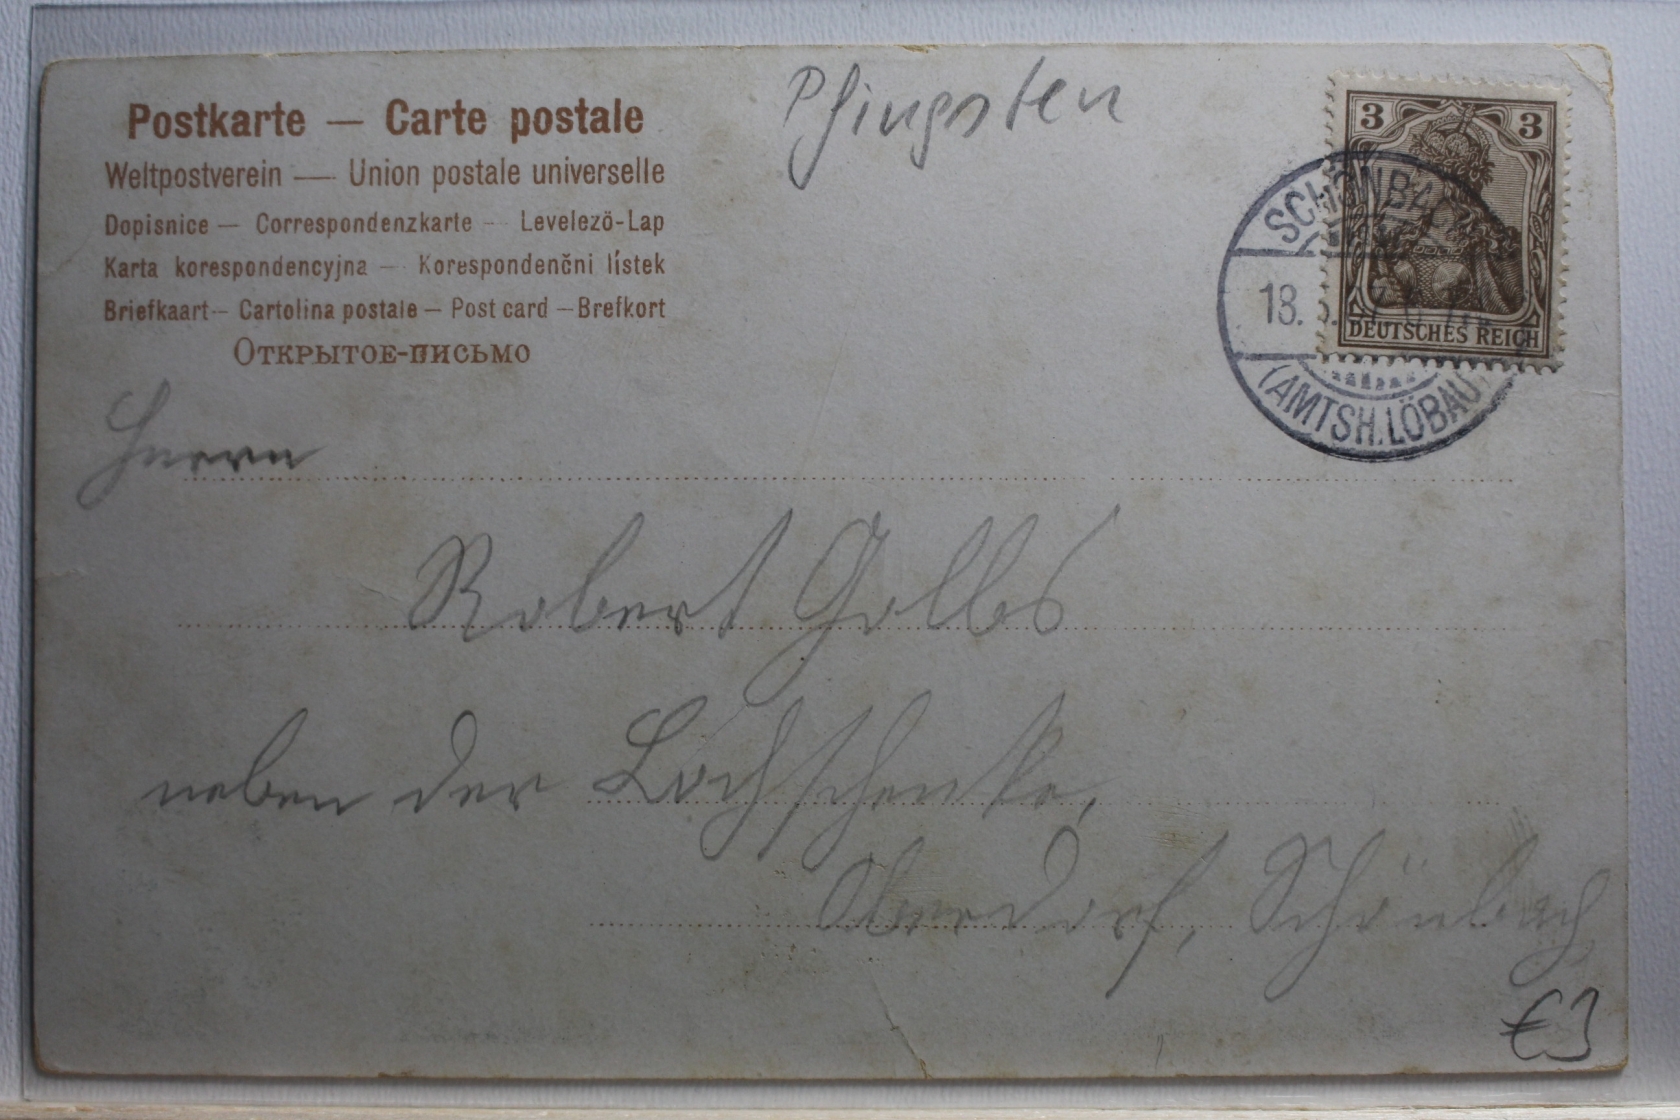 Postkarte — Carte postale
Weltpostverein — Union postale universelle
Dopisnice — Correspondenzkarte — Levelező-Lap
Karta korespondencyjna — Korespondenční lístek
Briefkaart — Cartolina postale — Post card — Brefkort
Открытое-письмо
Pfingsten
3 3
DEUTSCHES REICH
SCHÖNBACH
18. 5.
(AMTSH. LÖBAU)
Herrn
Robert Golbs
neben der Lochschenke,
Oberdorf, Schönbach
€3